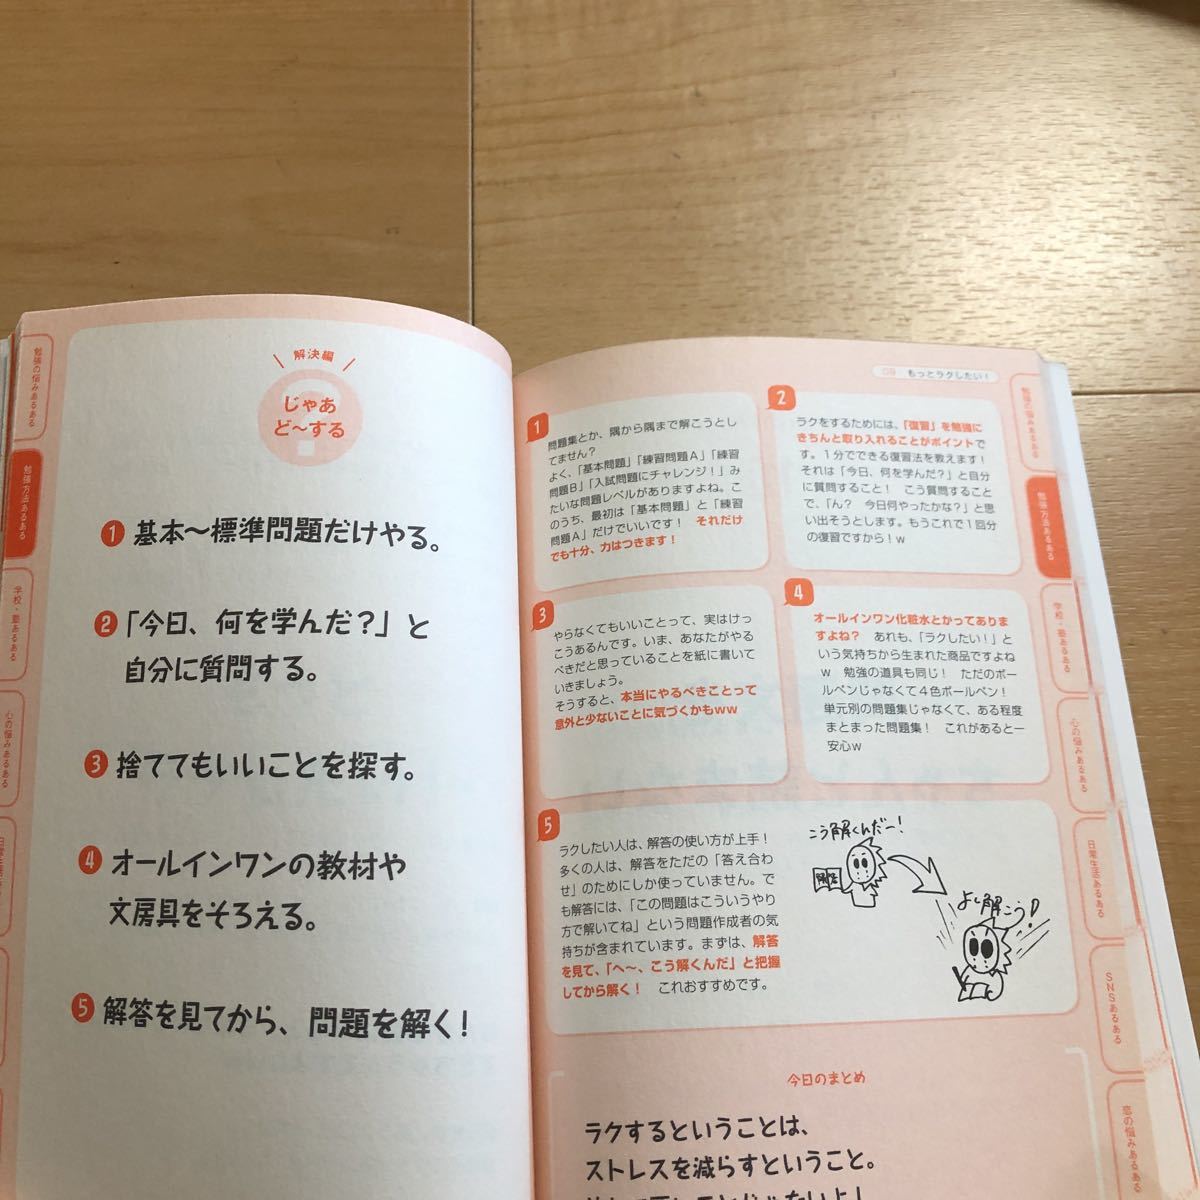 勉強の悩みあるある
勉強方法あるある
学校・塾あるある
心の悩みあるある
解決編
じゃあ
ど〜する
1 基本〜標準問題だけやる。
2 「今日、何を学んだ?」と
自分に質問する。
3 捨ててもいいことを探す。
4 オールインワンの教材や
文房具をそろえる。
5 解答を見てから、問題を解く!
09 もっとラクしたい!
1
問題集とか、隅から隅まで解こうとし
てません?
よく、「基本問題」「練習問題A」「練習
問題B」「入試問題にチャレンジ!」み
たいな問題レベルがありますよね。こ
のうち、最初は「基本問題」と「練習
問題A」だけでいいです! それだけ
でも十分、力はつきます!
2
ラクをするためには、「復習」を勉強に
きちんと取り入れることがポイントで
す。1分でできる復習法を教えます!
それは「今日、何を学んだ?」と自分
に質問すること! こう質問すること
で、「ん? 今日何やったかな?」と思
い出そうとします。もうこれで1回分
の復習ですから!w
3
やらなくてもいいことって、実はけっ
こうあるんです。いま、あなたがやる
べきだと思っていることを紙に書いて
いきましょう。
そうすると、本当にやるべきことって
意外と少ないことに気づくかもww
4
オールインワン化粧水とかってありま
すよね? あれも、「ラクしたい!」と
いう気持ちから生まれた商品ですよね
w 勉強の道具も同じ! ただのボー
ルペンじゃなくて4色ボールペン!
単元別の問題集じゃなくて、ある程度
まとまった問題集! これがあると一
安心w
5
ラクしたい人は、解答の使い方が上手!
多くの人は、解答をただの「答え合わ
せ」のためにしか使っていません。で
も解答には、「この問題はこういうやり
方で解いてね」という問題作成者の気
持ちが含まれています。まずは、解答
を見て、「へ〜、こう解くんだ」と把握
してから解く! これおすすめです。
こう解くんだー!
解答
よし解こう!
今日のまとめ
ラクするということは、
ストレスを減らすということ。
勉強の悩みあるある
勉強方法あるある
学校・塾あるある
心の悩みあるある
日常生活あるある
SNSあるある
恋の悩みあるある